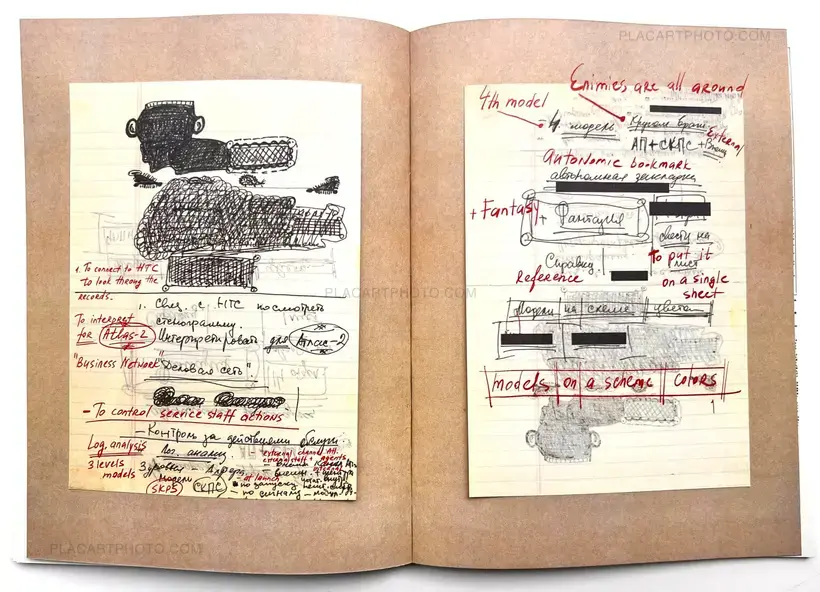 PLACARTPHOTO.COM
PLACARTPHOTO.COM
1. To connect to HTC
To look through the
records.
1. Связ. с НТС посмотреть
стенограмму.
To interpret
for Atlas-2
Интерпретировать для Атлас-2
"Business Network"
"Деловая сеть".
- To control service staff actions
- Контроль за действиями обслуги.
Log. analysis
Лог. анализ.
3 levels
models
3 уровня
модели
SKPS
СКПС
external channel
agents
- at launch
- по запуску
- по сигналу
PLACARTPHOTO.COM
Enimies are all around
4th model
- 4 модель
Кругом враги
External
АП+СКПС+Внеш
Autonomic bookmark
автономная закладка
+ Fantasy
+ Фантазия
свести на
лист
To put it
on a single
sheet
Справку
Reference
Модели на схеме цвета
models on a scheme colors
1
PLACARTPHOTO.COM
PLACARTPHOTO.COM